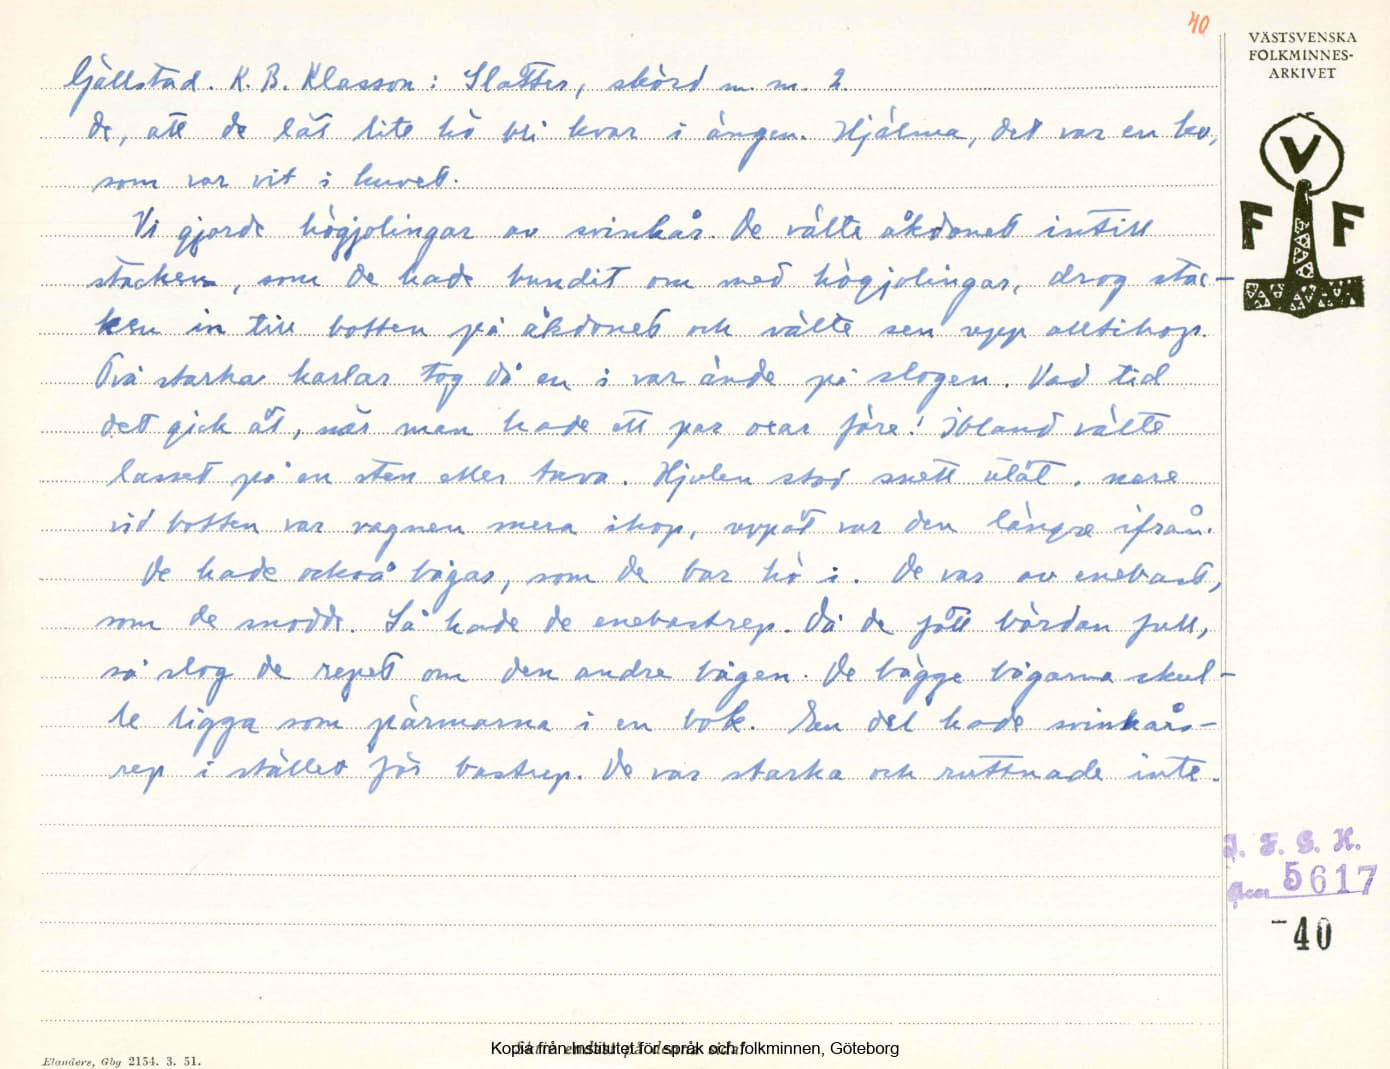 40
VÄSTSVENSKA
FOLKMINNES-
ARKIVET
V
F F
Gällstad. K. B. Klasson: Slåtter, skörd m. m. 2.
de, att de lät lite hö bli kvar i ängen. Hjälma, det var en ko,
som var vit i huvet.
Vi gjorde högjolingar av svinhår. De välte åkdonet intill
stacken, som de hade bundit om med högjolingar, drog stac-
ken in till botten på åkdonet och välte sen upp alltihop.
Två starka karlar tog då en i var ände på slogen. Vad tid
det gick åt, när man hade ett par oxar före! Ibland välte
lasset på en sten eller tuva. Hjulen stod snett utåt, nere
vid botten var vagnen mera ihop, uppåt var den längre ifrån.
De hade också bågar, som de bar hö i. De var av enebast,
som de snodde. Så hade de enebastrep. Då de fått bördan full,
så slog de repet om den andre bågen. De bägge bågarna skul-
le ligga som pärmarna i en bok. En del hade svinhårs-
rep i stället för bastrep. De var starka och ruttnade inte.
I. F. G. H.
Acc 5617
-40
Elanders, Gbg 2154. 3. 51.
Kopia från Institutet för språk och folkminnen, Göteborg